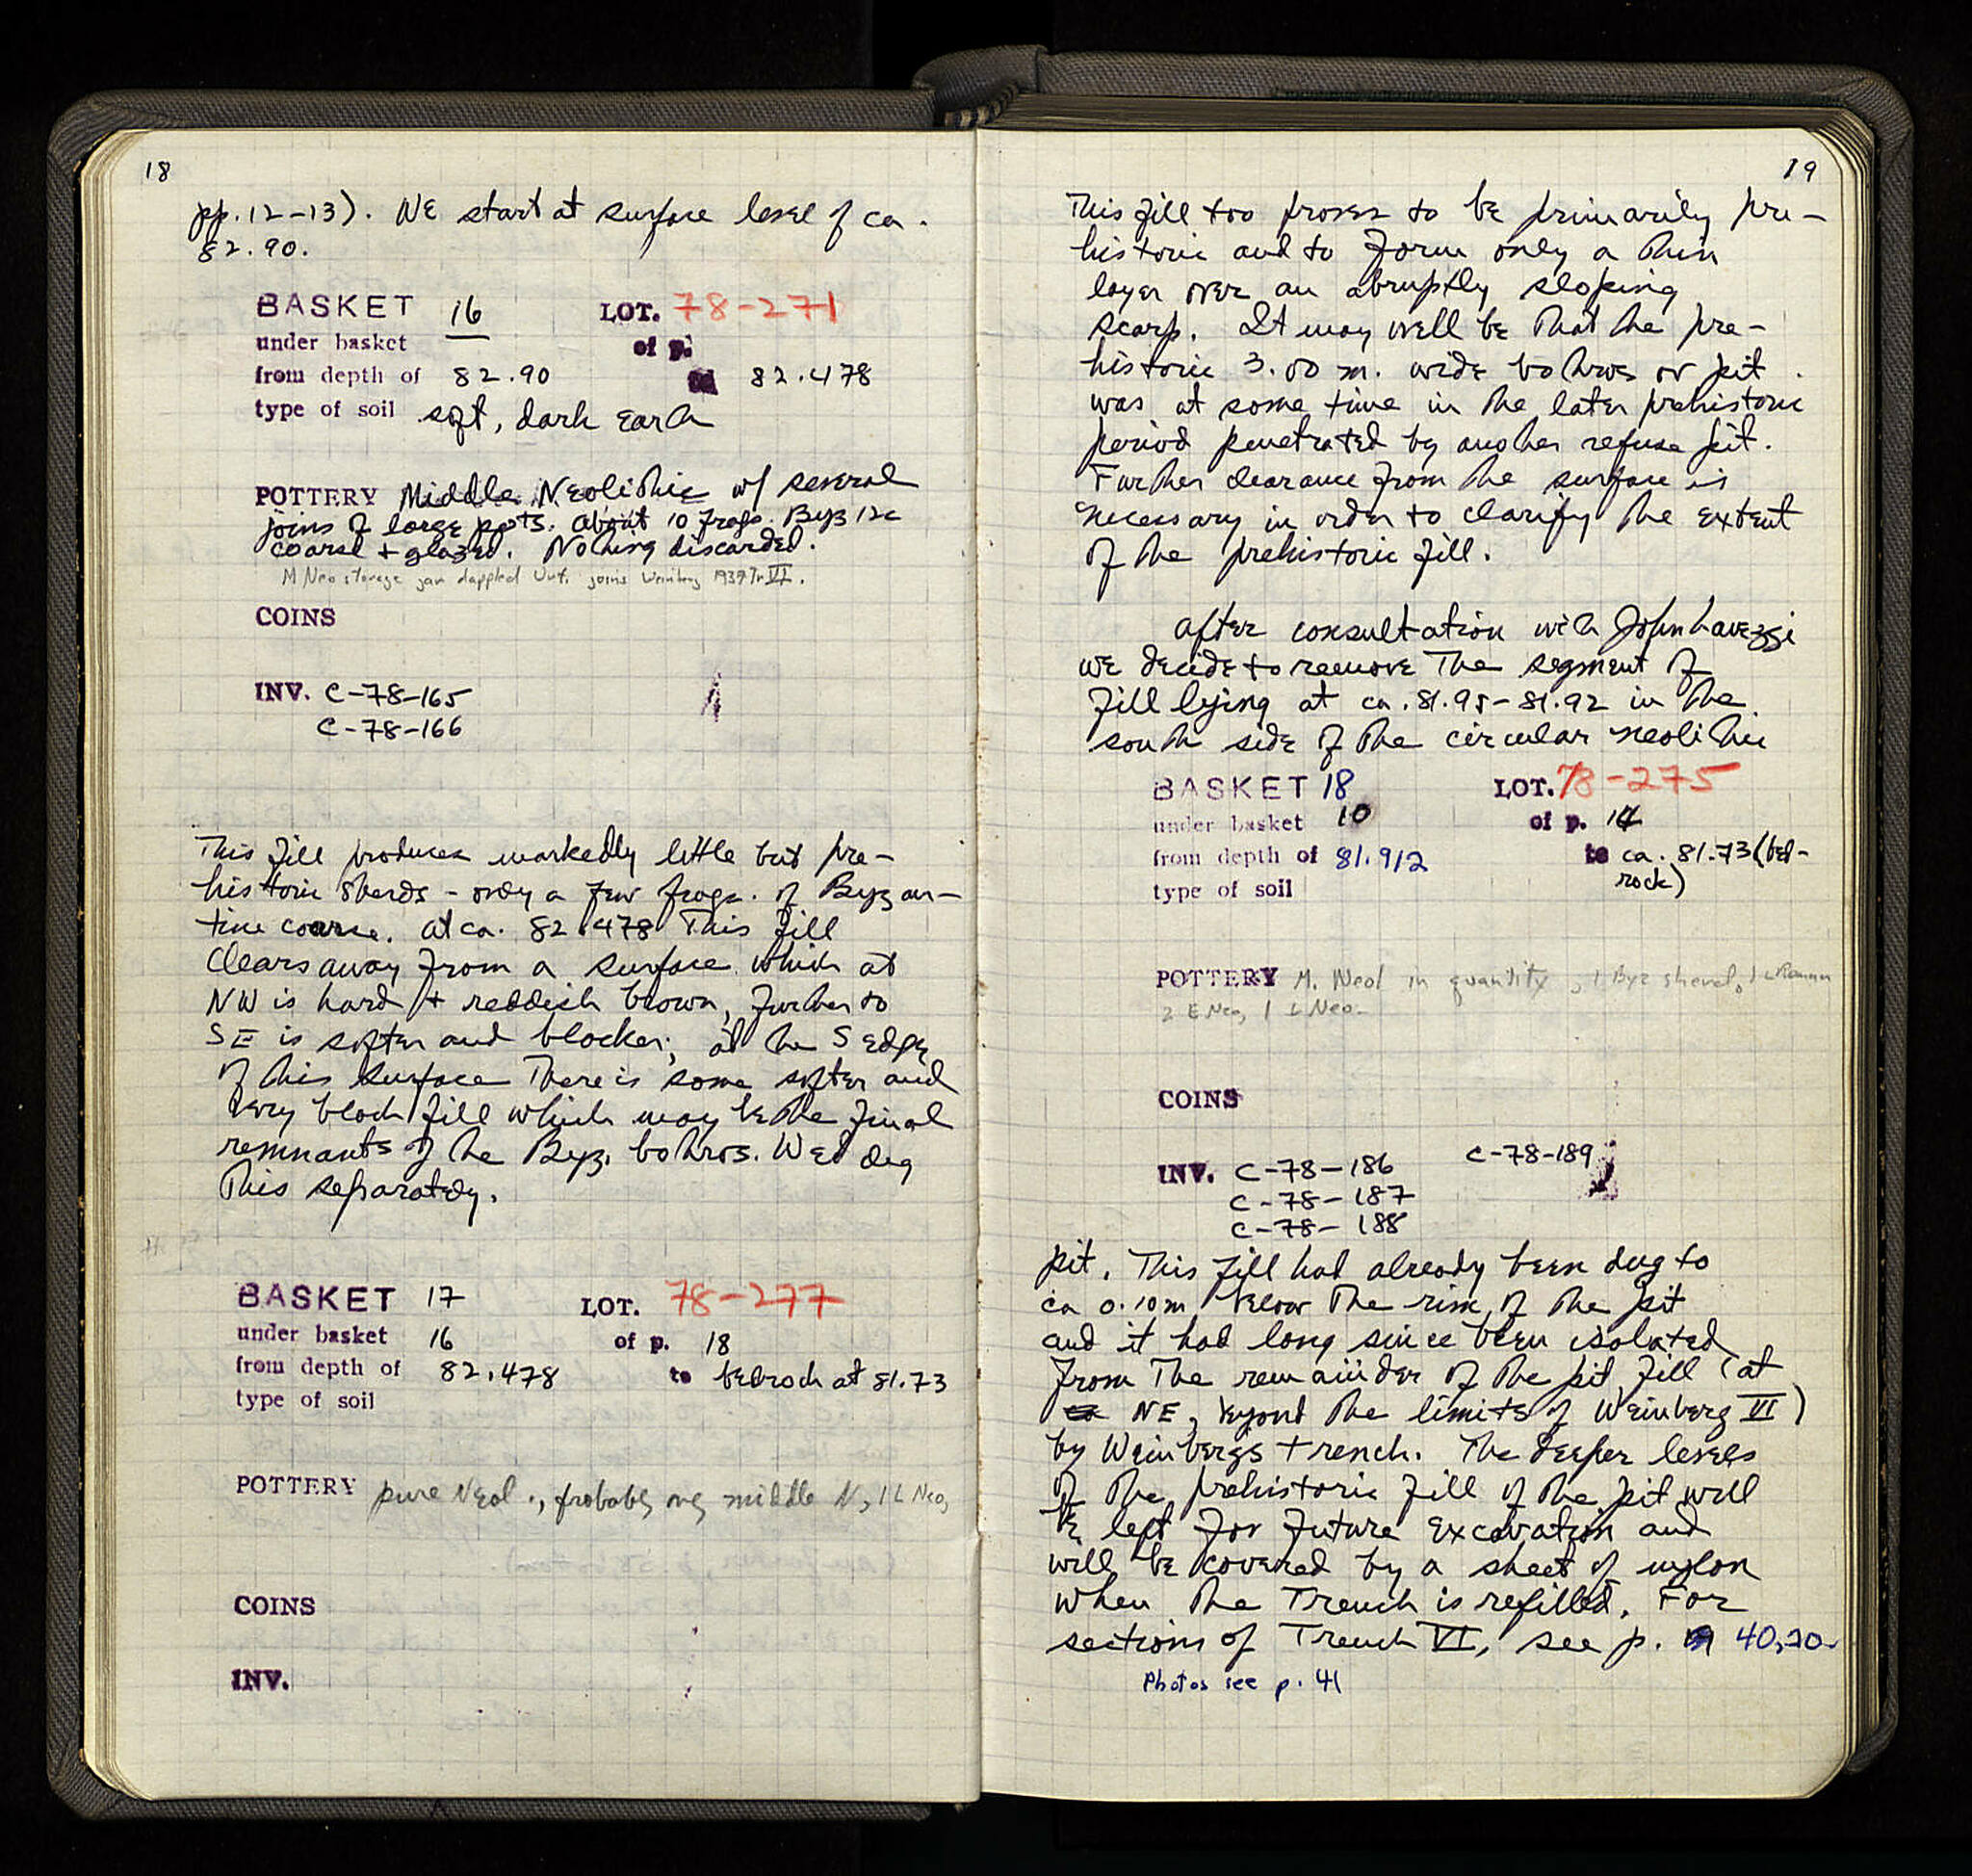 18
pp. 12-13). We start at surface level of ca.
82.90.
BASKET 16 LOT. 78-271
under basket of p.
from depth of 82.90 to 82.478
type of soil soft, dark earth
POTTERY Middle Neolithic w/ several
joins of large pots. About 10 frags. Byz 12c
coarse + glazed. Nothing discarded.
M Neo storage jar dappled Unf. joins Weinberg 1937 Tr VI.
COINS
INV. C-78-165
C-78-166
This fill produces markedly little but pre-
historic sherds - only a few frags. of Byzan-
tine coarse. at ca. 82.478 This fill
clears away from a surface which at
NW is hard + reddish brown, further to
SE is softer and blacker; at the S edge
of this surface There is some softer and
very black fill which may be the final
remnants of the Byz. bothros. We dig
This separately.
BASKET 17 LOT. 78-277
under basket 16 of p. 18
from depth of 82.478 to bedrock at 81.73
type of soil
POTTERY pure Neol., probably only middle N, 1 L Neo,
COINS
INV.
19
This fill too proves to be primarily pre-
historic and to form only a thin
layer over an abruptly sloping
scarp. It may well be that the pre-
historic 3.00 m. wide bothros or pit
was at some time in the later prehistoric
period penetrated by another refuse pit.
Further clearance from the surface is
necessary in order to clarify the extent
of the prehistoric fill.
After consultation with John Lavezzi
we decide to remove The segment of
fill lying at ca. 81.95-81.92 in the
south side of the circular neolithic
BASKET 18 LOT. 78-275
under basket 10 of p. 14
from depth of 81.912 to ca. 81.73 (bed-
type of soil rock)
POTTERY M. Neol in quantity, 1 Byz sherd, 1 L Roman
2 E Neo, 1 L Neo.
COINS
INV. C-78-186 C-78-189
C-78-187
C-78-188
pit. This fill had already been dug to
ca 0.10m below The rim of the pit
and it had long since been isolated
from The remainder of the pit fill (at
NE, beyond the limits of Weinberg VI)
by Weinbergs trench. The deeper levels
of the prehistoric fill of the pit will
be left for future excavation and
will be covered by a sheet of nylon
when the Trench is refilled. For
sections of Trench VI, see p. 40, 70.
Photos see p. 41